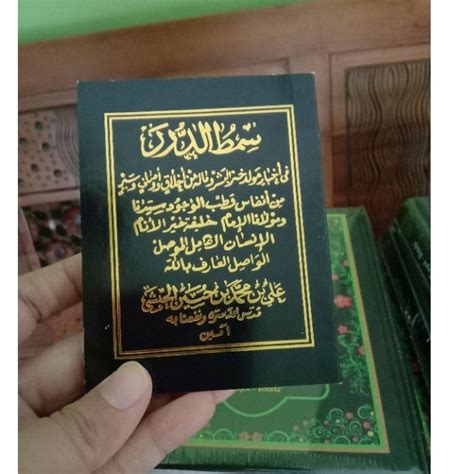 سمط الدرر
في أخبار مولد خير البشر وما له من أخلاق وأوصاف وسير
من أنفاس قطب الوجود سيدنا
ومولانا الإمام خليفة خير الأنام
الإنسان الكامل الموصل
الواصل العارف بالله
علي بن محمد بن حسين الحبشي
قدس الله سره ونفعنا به
آمين